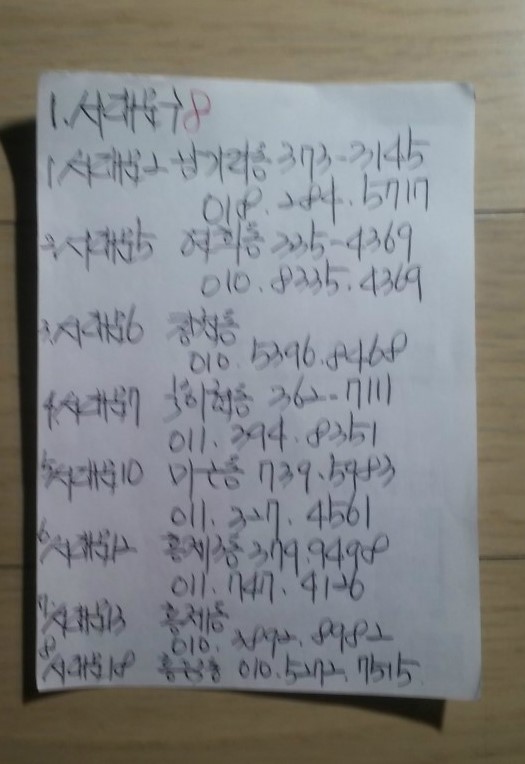 1. 서대문구 8
1. 서대문2 남가좌동 373-3145
018. 284. 5717
2. 서대문5 연희동 335-4369
010. 8335. 4369
3. 서대문6
010. 5396. 8468
4. 서대문7 북아현동 362-7111
011. 394. 8351
5. 서대문10 미근동 739.5983
011. 327. 4561
6. 서대문12 홍제3동 379.9498
011. 747. 4126
7. 서대문13 홍제동
010. 3892. 8982
8. 서대문18 홍은동 010.5272.7515.